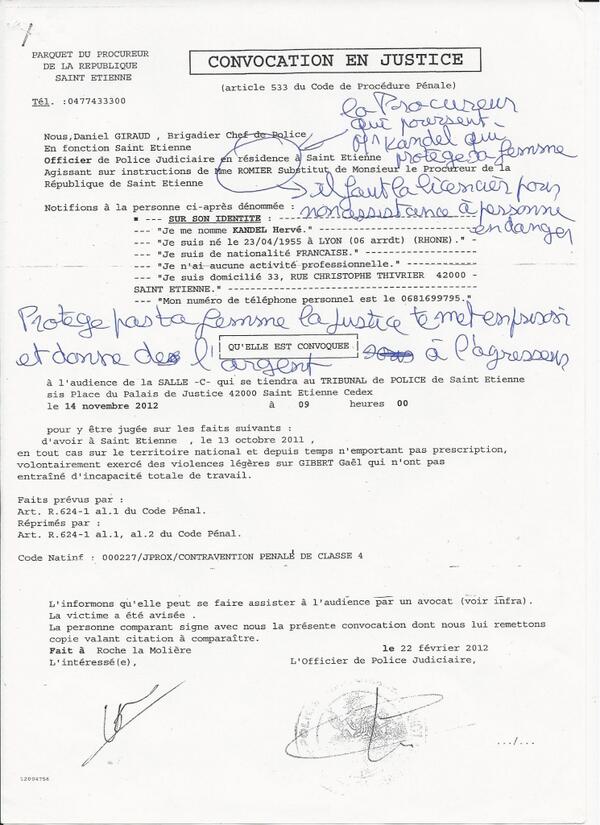 PARQUET DU PROCUREUR
DE LA REPUBLIQUE
SAINT ETIENNE
CONVOCATION EN JUSTICE
(article 533 du Code de Procédure Pénale)
Tél. :0477433300
la Procureur
qui poursent
Mr Kandel qui
protège sa femme
il faut la licencier pour
non assistance à personne
en danger
Nous,Daniel GIRAUD , Brigadier Chef de Police
En fonction Saint Etienne
Officier de Police Judiciaire en résidence à Saint Etienne
Agissant sur instructions de Mme ROMIER Substitut de Monsieur le Procureur de la
République de Saint Etienne
Notifions à la personne ci-après dénommée :
■ --- SUR SON IDENTITE : ---
--- "Je me nomme KANDEL Hervé." ---
--- "Je suis né le 23/04/1955 à LYON (06 arrdt) (RHONE)." -
--- "Je suis de nationalité FRANCAISE." ---
--- "Je n'ai aucune activité professionnelle." ---
--- "Je suis domicilié 33, RUE CHRISTOPHE THIVRIER 42000 -
SAINT ETIENNE." ---
--- "Mon numéro de téléphone personnel est le 0681699795."
Protège pas ta femme la justice te met en prison
et donne de l'argent à l'agresseur
QU'ELLE EST CONVOQUEE
à l'audience de la SALLE -C- qui se tiendra au TRIBUNAL de POLICE de Saint Etienne
sis Place du Palais de Justice 42000 Saint Etienne Cedex
le 14 novembre 2012 à 09 heures 00
pour y être jugée sur les faits suivants :
d'avoir à Saint Etienne , le 13 octobre 2011 ,
en tout cas sur le territoire national et depuis temps n'emportant pas prescription,
volontairement exercé des violences légères sur GIBERT Gaël qui n'ont pas
entraîné d'incapacité totale de travail.
Faits prévus par :
Art. R.624-1 al.1 du Code Pénal.
Réprimés par :
Art. R.624-1 al.1, al.2 du Code Pénal.
Code Natinf : 000227/JPROX/CONTRAVENTION PENALE DE CLASSE 4
L'informons qu'elle peut se faire assister à l'audience par un avocat (voir infra).
La victime a été avisée .
La personne comparant signe avec nous la présente convocation dont nous lui remettons
copie valant citation à comparaître.
Fait à Roche la Molière le 22 février 2012
L'intéressé(e), L'Officier de Police Judiciaire,
.../...